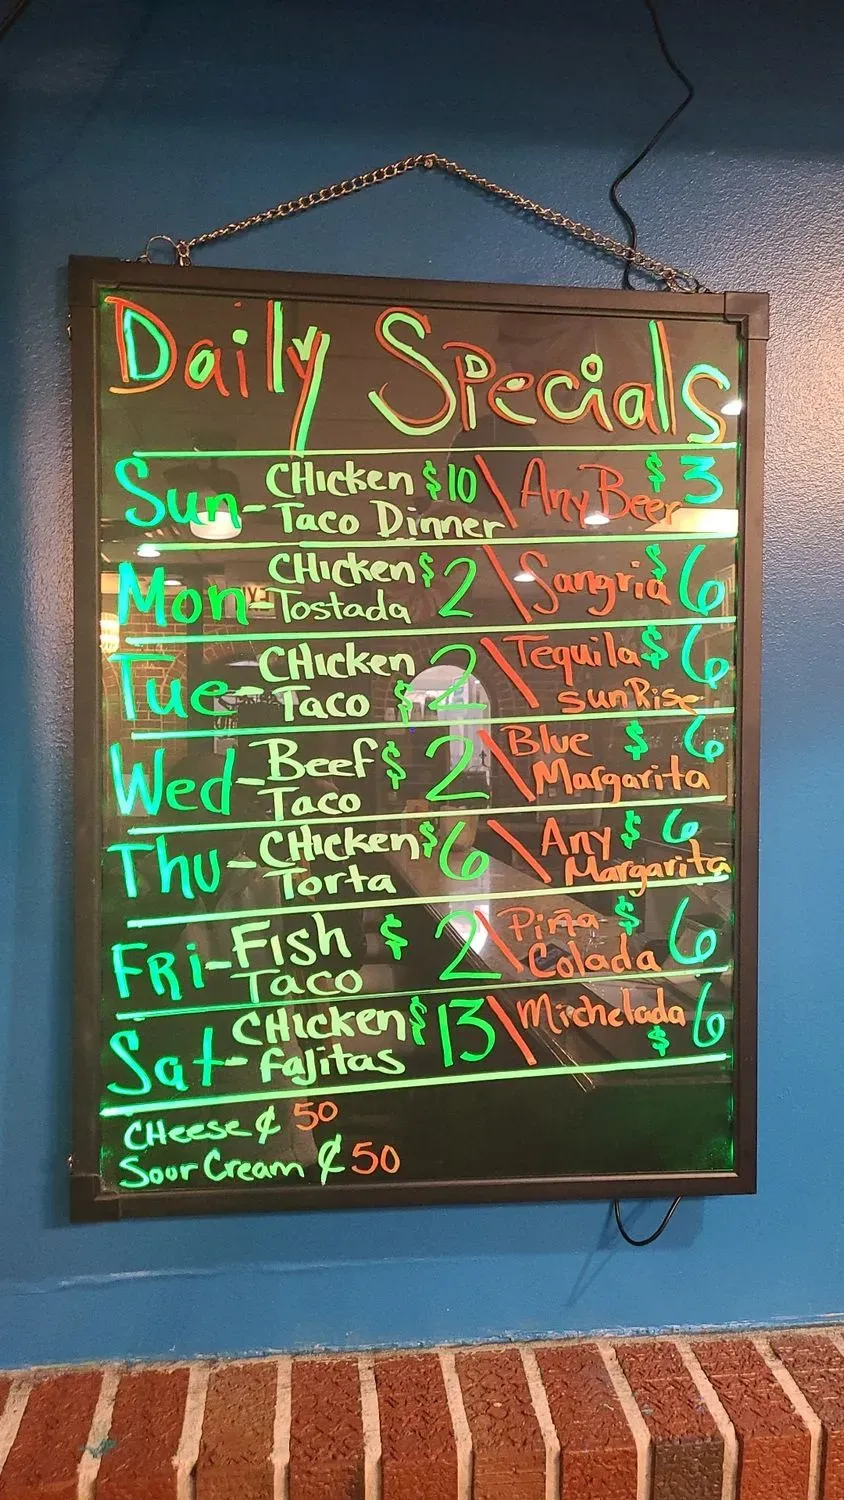 Daily Specials
Sun- CHicken $10 \ Any Beer $3
Taco Dinner
Mon- CHicken $2 \ Sangria $6
Tostada
Tue- CHicken $2 \ Tequila $6
Taco sunRise
Wed- Beef $2 \ Blue $6
Taco Margarita
Thu- CHicken $6 \ Any $6
Torta Margarita
FRi- Fish $2 \ Piña $6
Taco Colada
Sat- CHicken $13 \ Michelada $6
fajitas
CHeese ¢ 50
Sour Cream ¢ 50